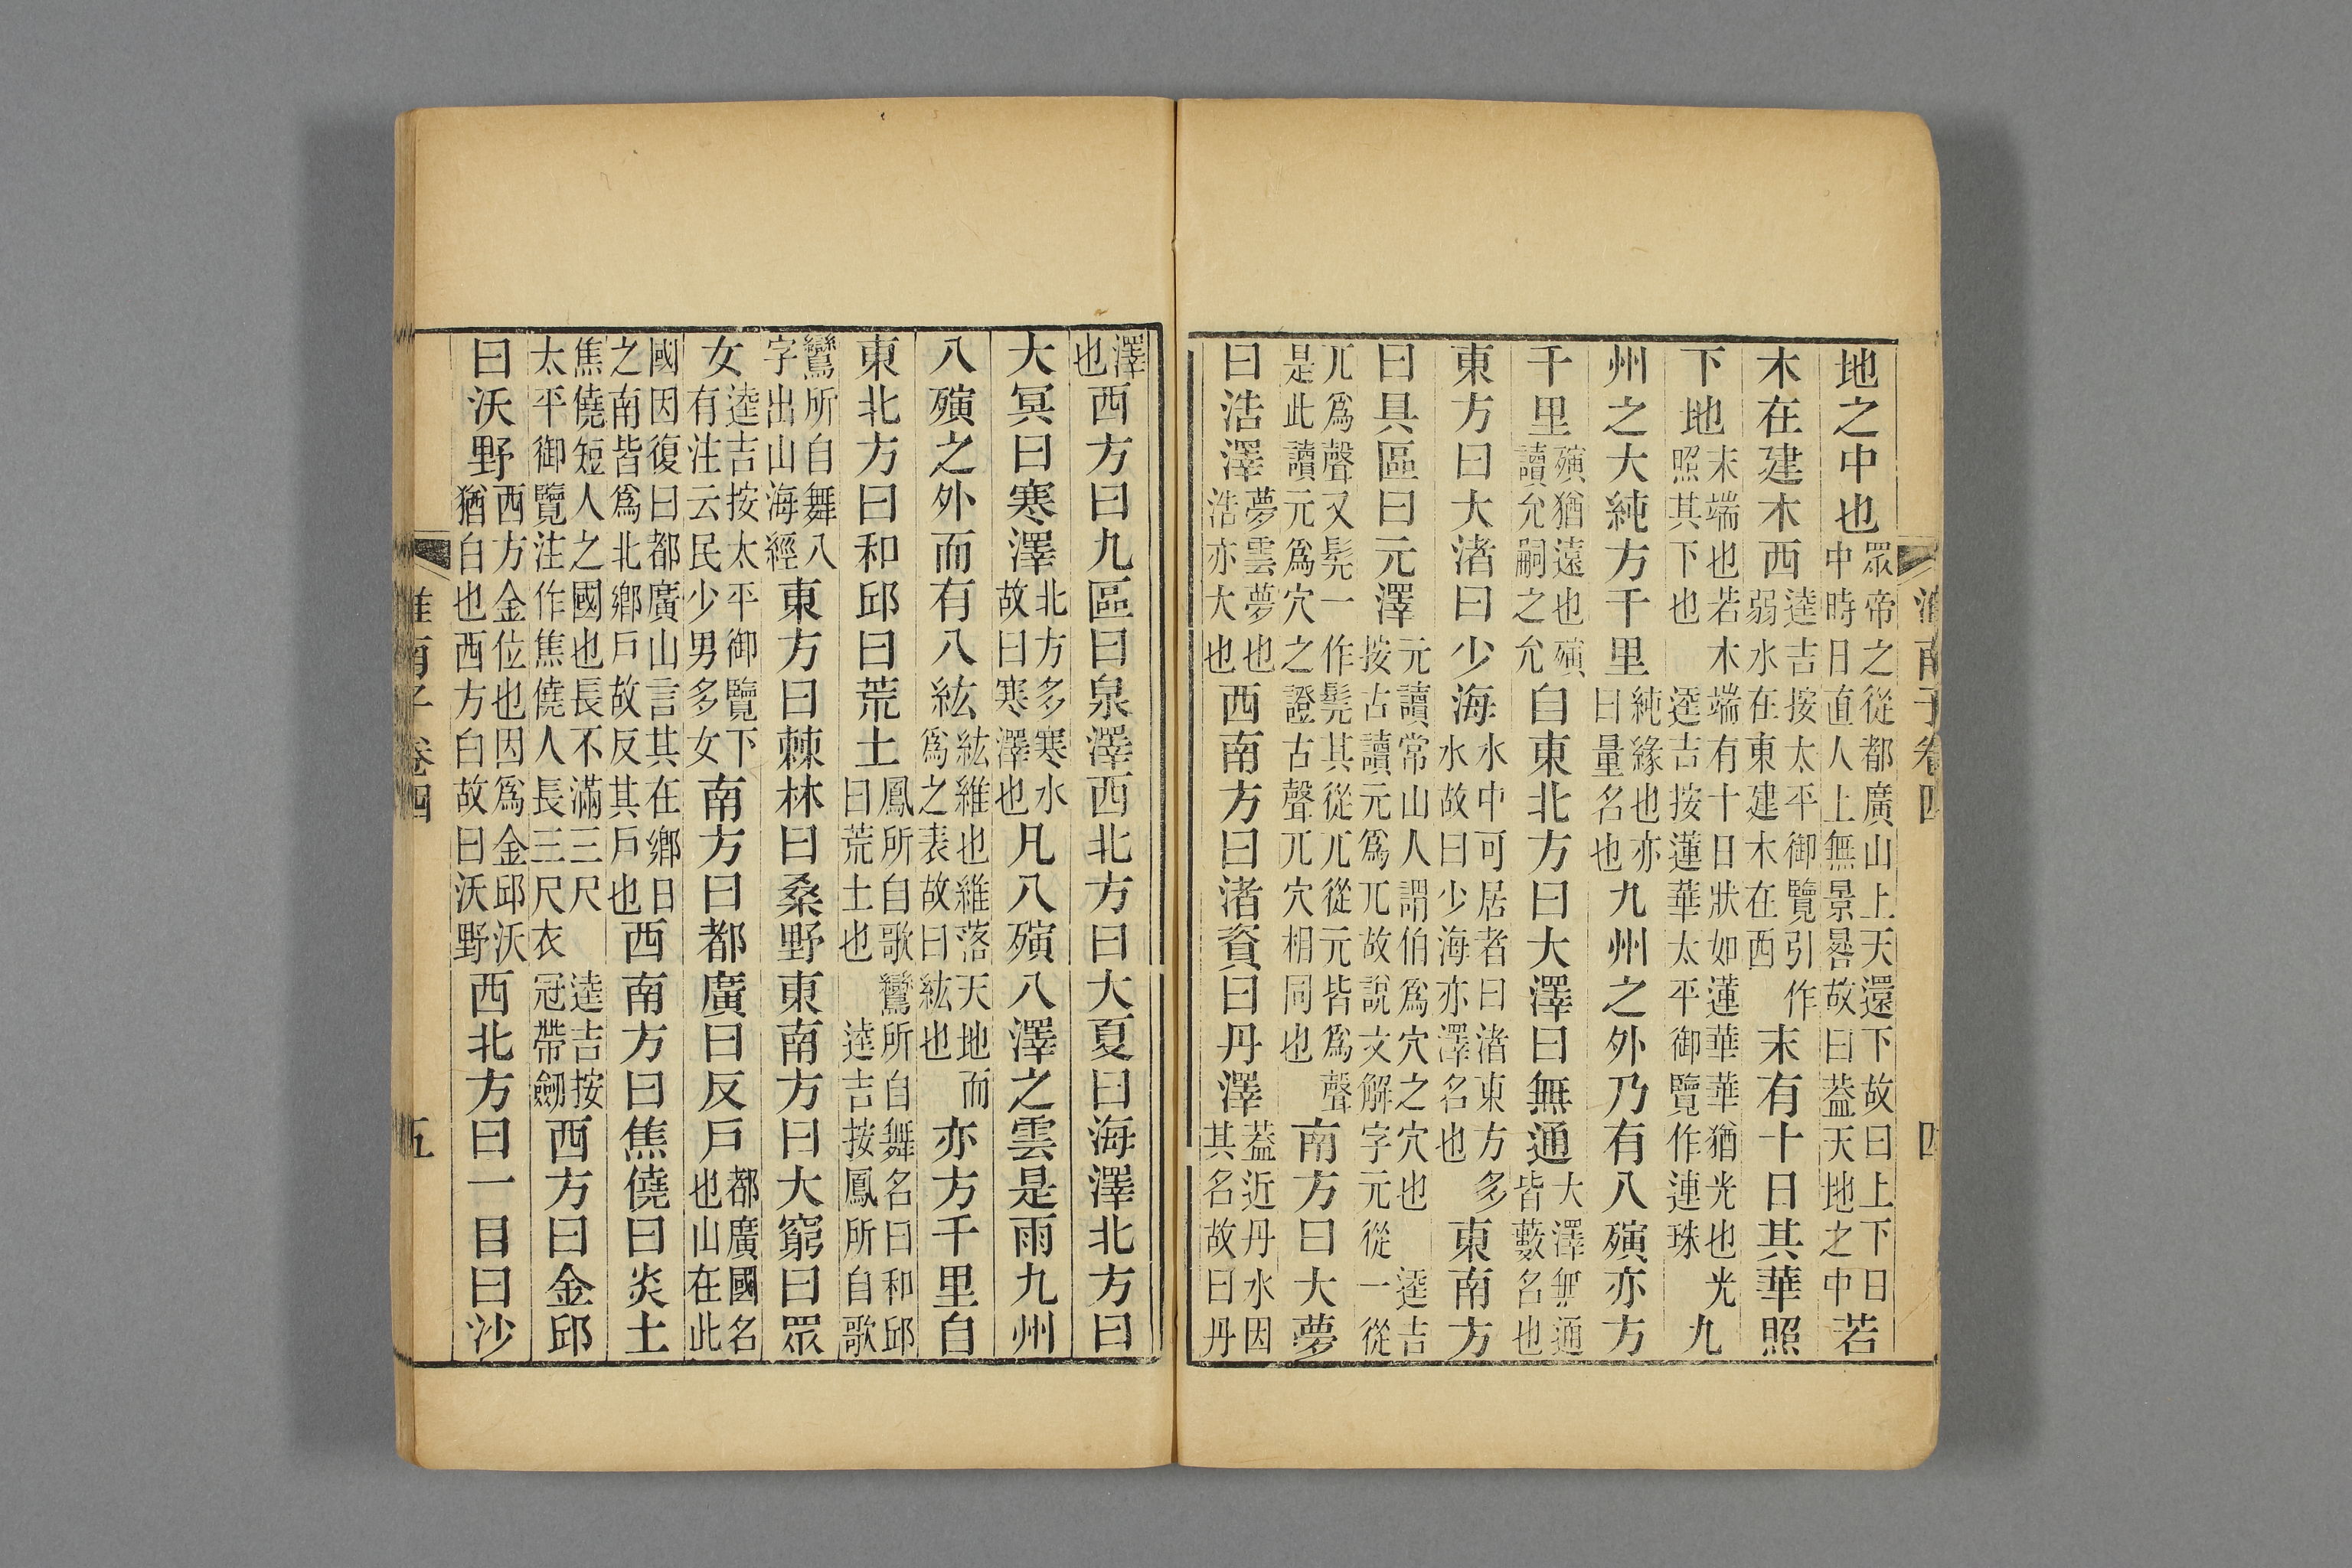 淮南子卷四 四
地之中也眾帝之從都廣山上天還下故曰上下日中時日直人上無景晷故曰葢天地之中若
木在建木西逵吉按太平御覽引作弱水在東建木在西末有十日其華照
下地末端也若木端有十日狀如蓮華華猶光也光照其下也逵吉按蓮華太平御覽作連珠九
州之大純方千里純緣也亦曰量名也九州之外乃有八殥亦方
千里殥猶遠也殥讀允嗣之允自東北方曰大澤曰無通大澤無通皆藪名也
東方曰大渚曰少海水中可居者曰渚東方多水故曰少海亦澤名也東南方
曰具區曰元澤元讀常山人謂伯爲穴之穴也逵吉按古讀元爲兀故說文解字元從一從
兀爲聲又髡一作髨其從兀從元皆爲聲是此讀元爲穴之證古聲兀穴相同也南方曰大夢
曰浩澤夢雲夢也浩亦大也西南方曰渚資曰丹澤葢近丹水因其名故曰丹
澤也西方曰九區曰泉澤西北方曰大夏曰海澤北方曰
大冥曰寒澤北方多寒水故曰寒澤也凡八殥八澤之雲是雨九州
八殥之外而有八紘紘維也維落天地而爲之表故曰紘也亦方千里自
東北方曰和邱曰荒土鳳所自歌鸞所自舞名曰和邱曰荒土也逵吉按鳳所自歌
鸞所自舞八字出山海經東方曰棘林曰桑野東南方曰大窮曰眾
女逵吉按太平御覽下有注云民少男多女南方曰都廣曰反戶都廣國名也山在此
國因復曰都廣山言其在鄉日之南皆爲北鄉戶故反其戶也西南方曰焦僥曰炎土
焦僥短人之國也長不滿三尺逵吉按太平御覽注作焦僥人長三尺衣冠帶劒西方曰金邱
曰沃野西方金位也因爲金邱沃猶白也西方白故曰沃野西北方曰一目曰沙
淮南子 卷四 五